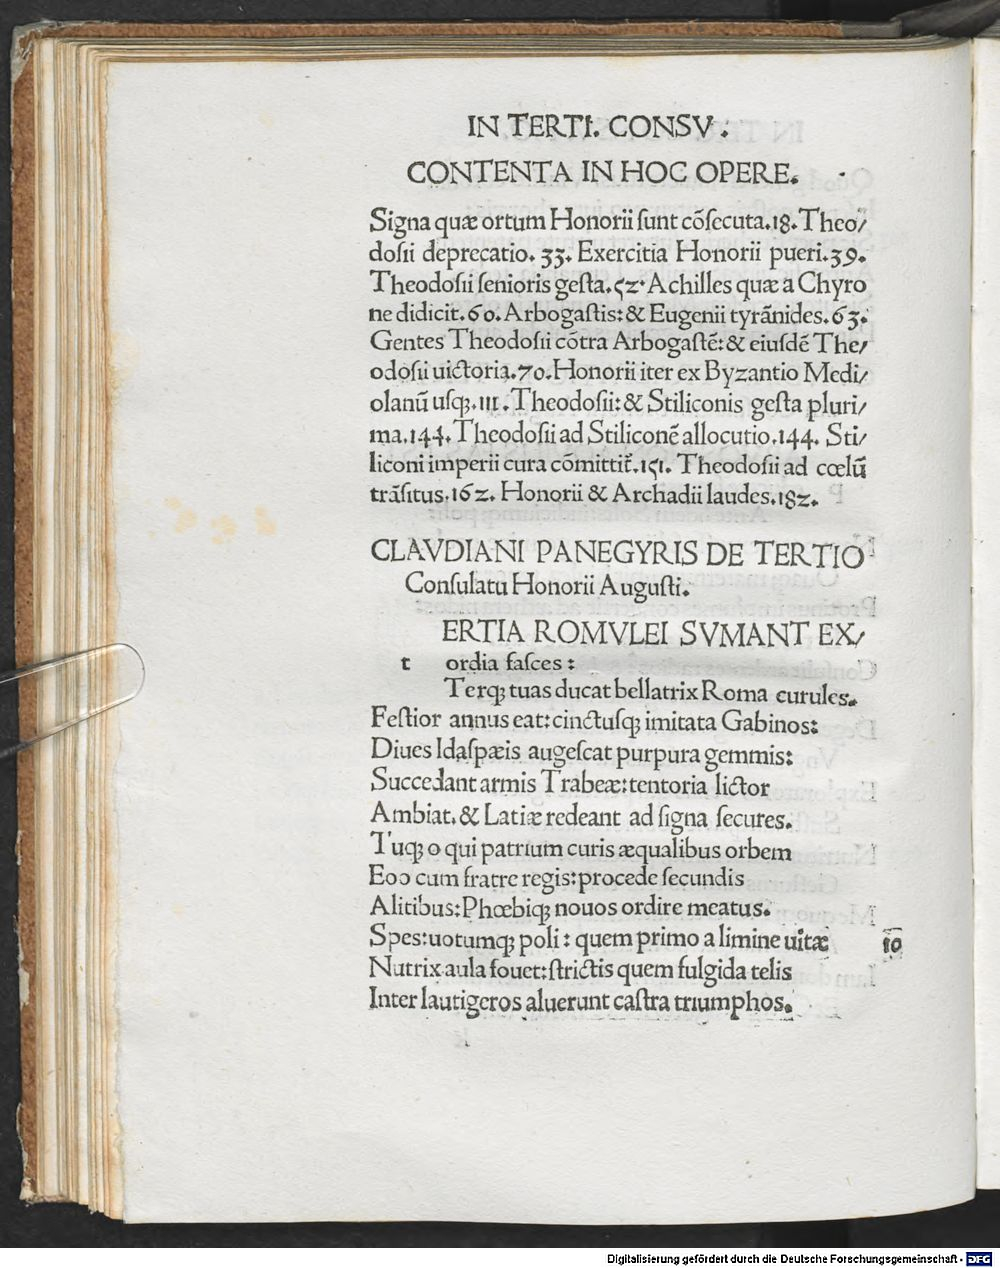 IN TERTI. CONSV.
CONTENTA IN HOC OPERE.
Signa quæ ortum Honorii ſunt cõſecuta.18. Theo/
doſii deprecatio. 33. Exercitia Honorii pueri.39.
Theodoſii ſenioris geſta.52. Achilles quæ a Chyro
ne didicit.60. Arbogaſtis: & Eugenii tyrãnides.63.
Gentes Theodoſii cõtra Arbogaſtẽ: & eiuſdẽ The/
odoſii uictoria.70. Honorii iter ex Byzantio Medi/
olanũ uſqꝫ.111. Theodoſii: & Stiliconis geſta pluri/
ma.144. Theodoſii ad Stiliconẽ allocutio.144. Sti/
liconi imperii cura cõmittit̃.151. Theodoſii ad cœlũ
trãſitus.162. Honorii & Archadii laudes.182.
CLAVDIANI PANEGYRIS DE TERTIO
Conſulatu Honorii Auguſti.
ERTIA ROMVLEI SVMANT EX/
t ordia faſces:
Terqꝫ tuas ducat bellatrix Roma curules.
Feſtior annus eat: cinctuſqꝫ imitata Gabinos:
Diues Idaſpæis augeſcat purpura gemmis:
Succedant armis Trabeæ: tentoria lictor
Ambiat. & Latiæ redeant ad ſigna ſecures.
Tuqꝫ o qui patrium curis æqualibus orbem
Eoo cum fratre regis: procede ſecundis
Alitibus: Phœbiqꝫ nouos ordire meatus.
Spes: uotumqꝫ poli: quem primo a limine uitæ 10
Nutrix aula fouet: ſtrictis quem fulgida telis
Inter lautigeros aluerunt caſtra triumphos.
Digitalisierung gefördert durch die Deutsche Forschungsgemeinschaft - DFG